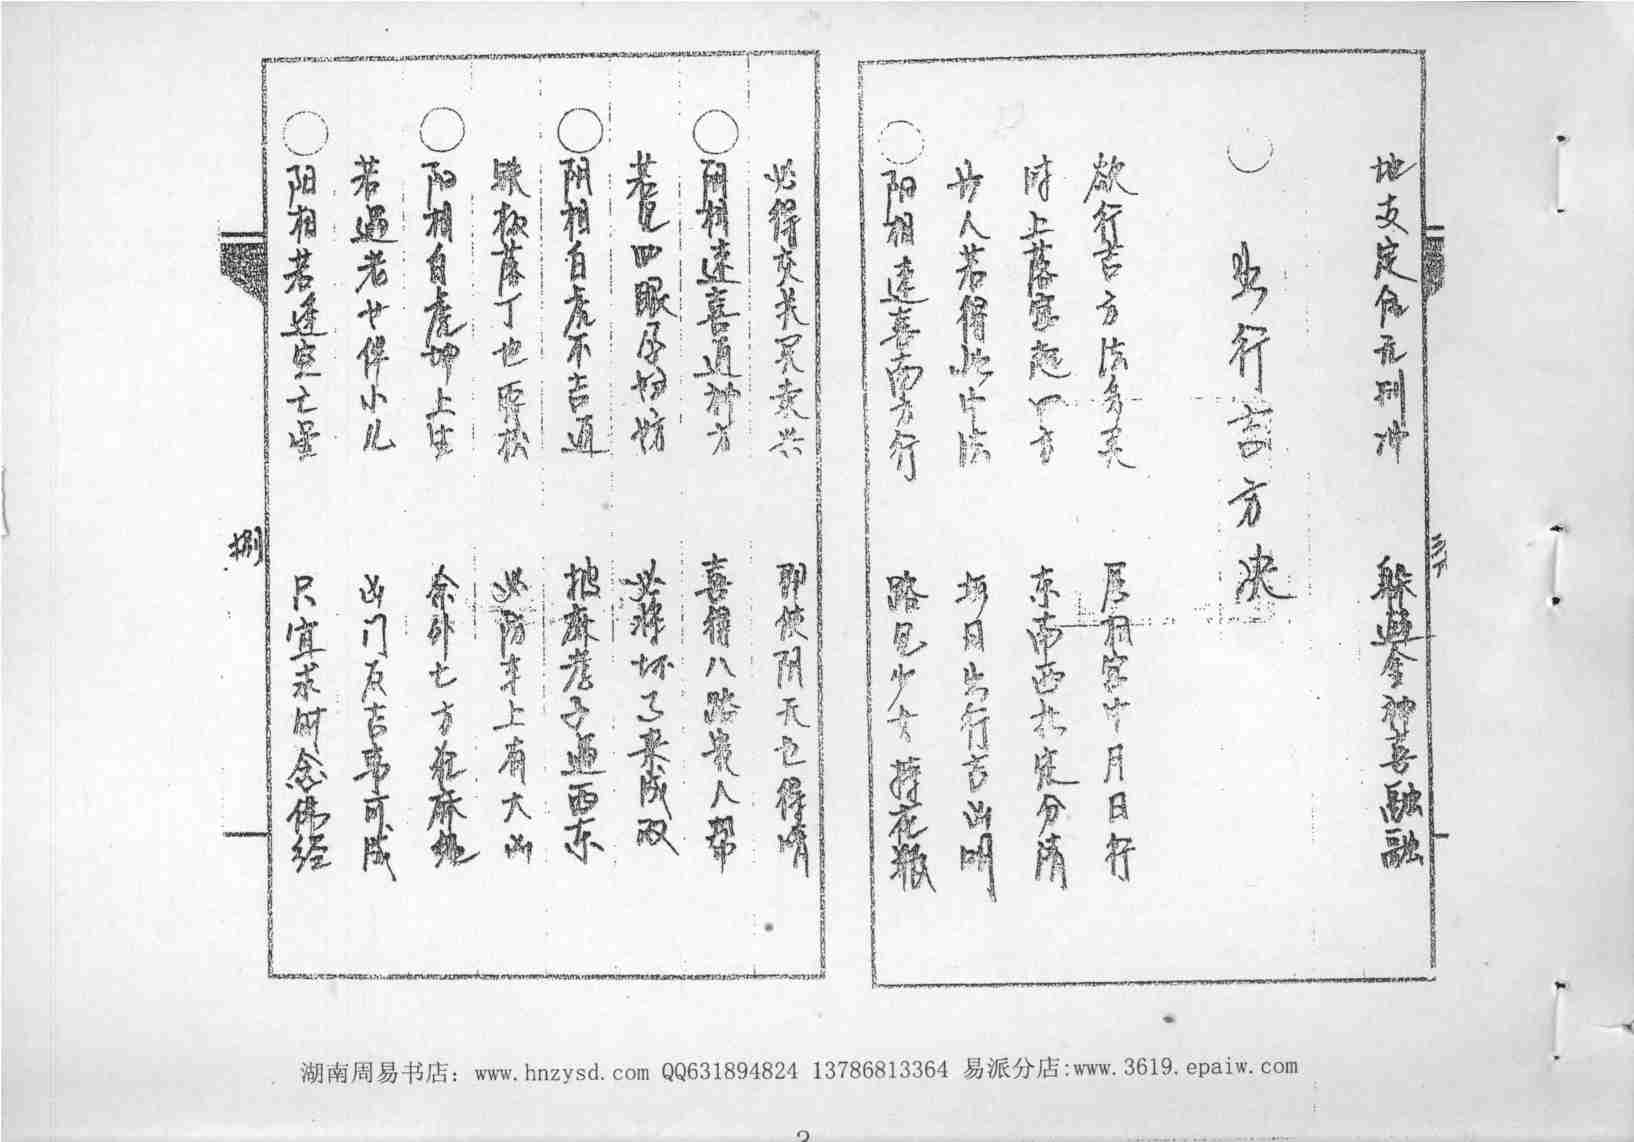 地支定位无刑冲 躲避金神喜融融
出行吉方决
欲行吉方法多美 局相宫中月日行
时上落宫起四方 东南西北定分清
世人若得此中法 每日出行吉凶明
阳相速喜南方行 路见少女持花银
必得交关买卖兴 即使阴天也得晴
阴相速喜通神方 喜得八路贵人帮
若见四眼孕妇妨 必将坏了来成双
阴相白虎不吉通 披麻孝子遍西东
跌板落丁也要松 必防车上有大凶
阳相白虎坤上生 余外七方犯麻绳
若遇老女伴小儿 凶门反吉事可成
阳相若逢空亡星 只宜求财念佛经
捌
湖南周易书店：www.hnzysd.com QQ631894824 13786813364 易派分店:www.3619.epaiw.com